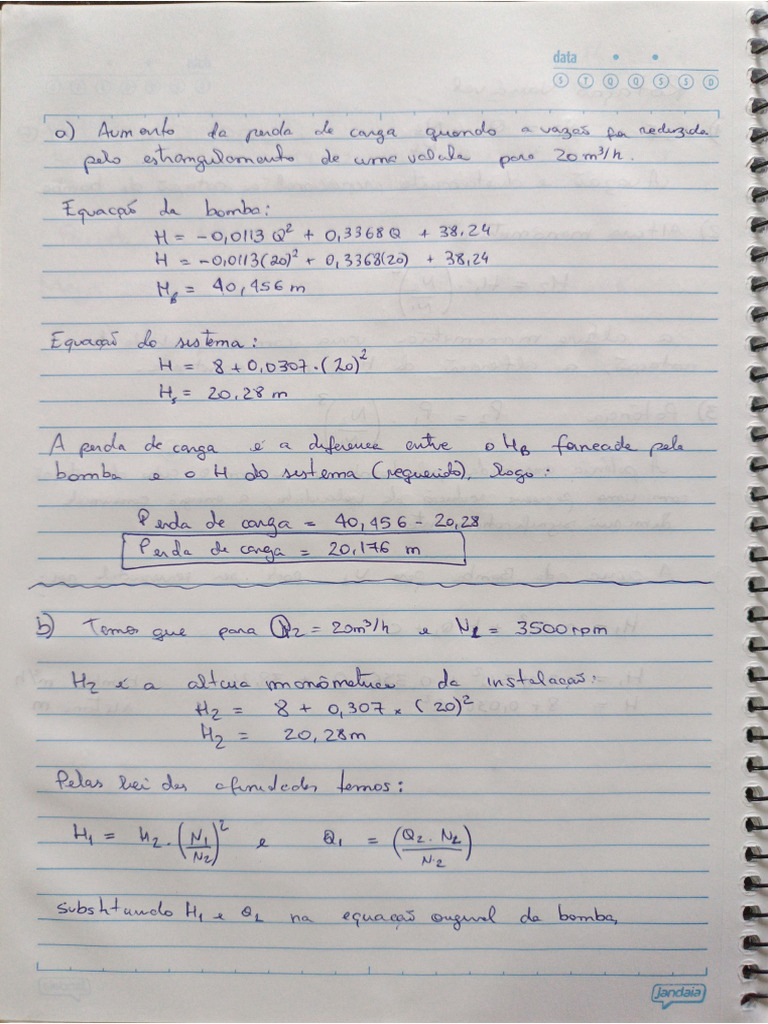 data
S T Q Q S S D
a) Aumento da perda de carga quando a vazão for reduzida
pelo estrangulamento de uma valvula para 20 m³/h.
Equação da bomba:
H = -0,0113 Q² + 0,3368Q + 38,24
H = -0,0113(20)² + 0,3368(20) + 38,24
H_B = 40,456 m
Equação do sistema:
H = 8 + 0,0307 · (20)²
H_s = 20,28 m
A perda de carga é a diferença entre o H_B fornecida pela
bomba e o H do sistema (requerido), logo:
Perda de carga = 40,456 - 20,28
Perda de carga = 20,176 m
b) Temos que para Q_2 = 20m³/h e N_1 = 3500 rpm
H_2 é a altura monômetrica da instalação:
H_2 = 8 + 0,307 × (20)²
H_2 = 20,28m
Pelas lei das afinidades temos:
H_1 = H_2 · (N_1/N_2)² e Q_1 = (Q_2 · N_1/N_2)
substituindo H_1 e Q_1 na equação original da bomba,
jandaia